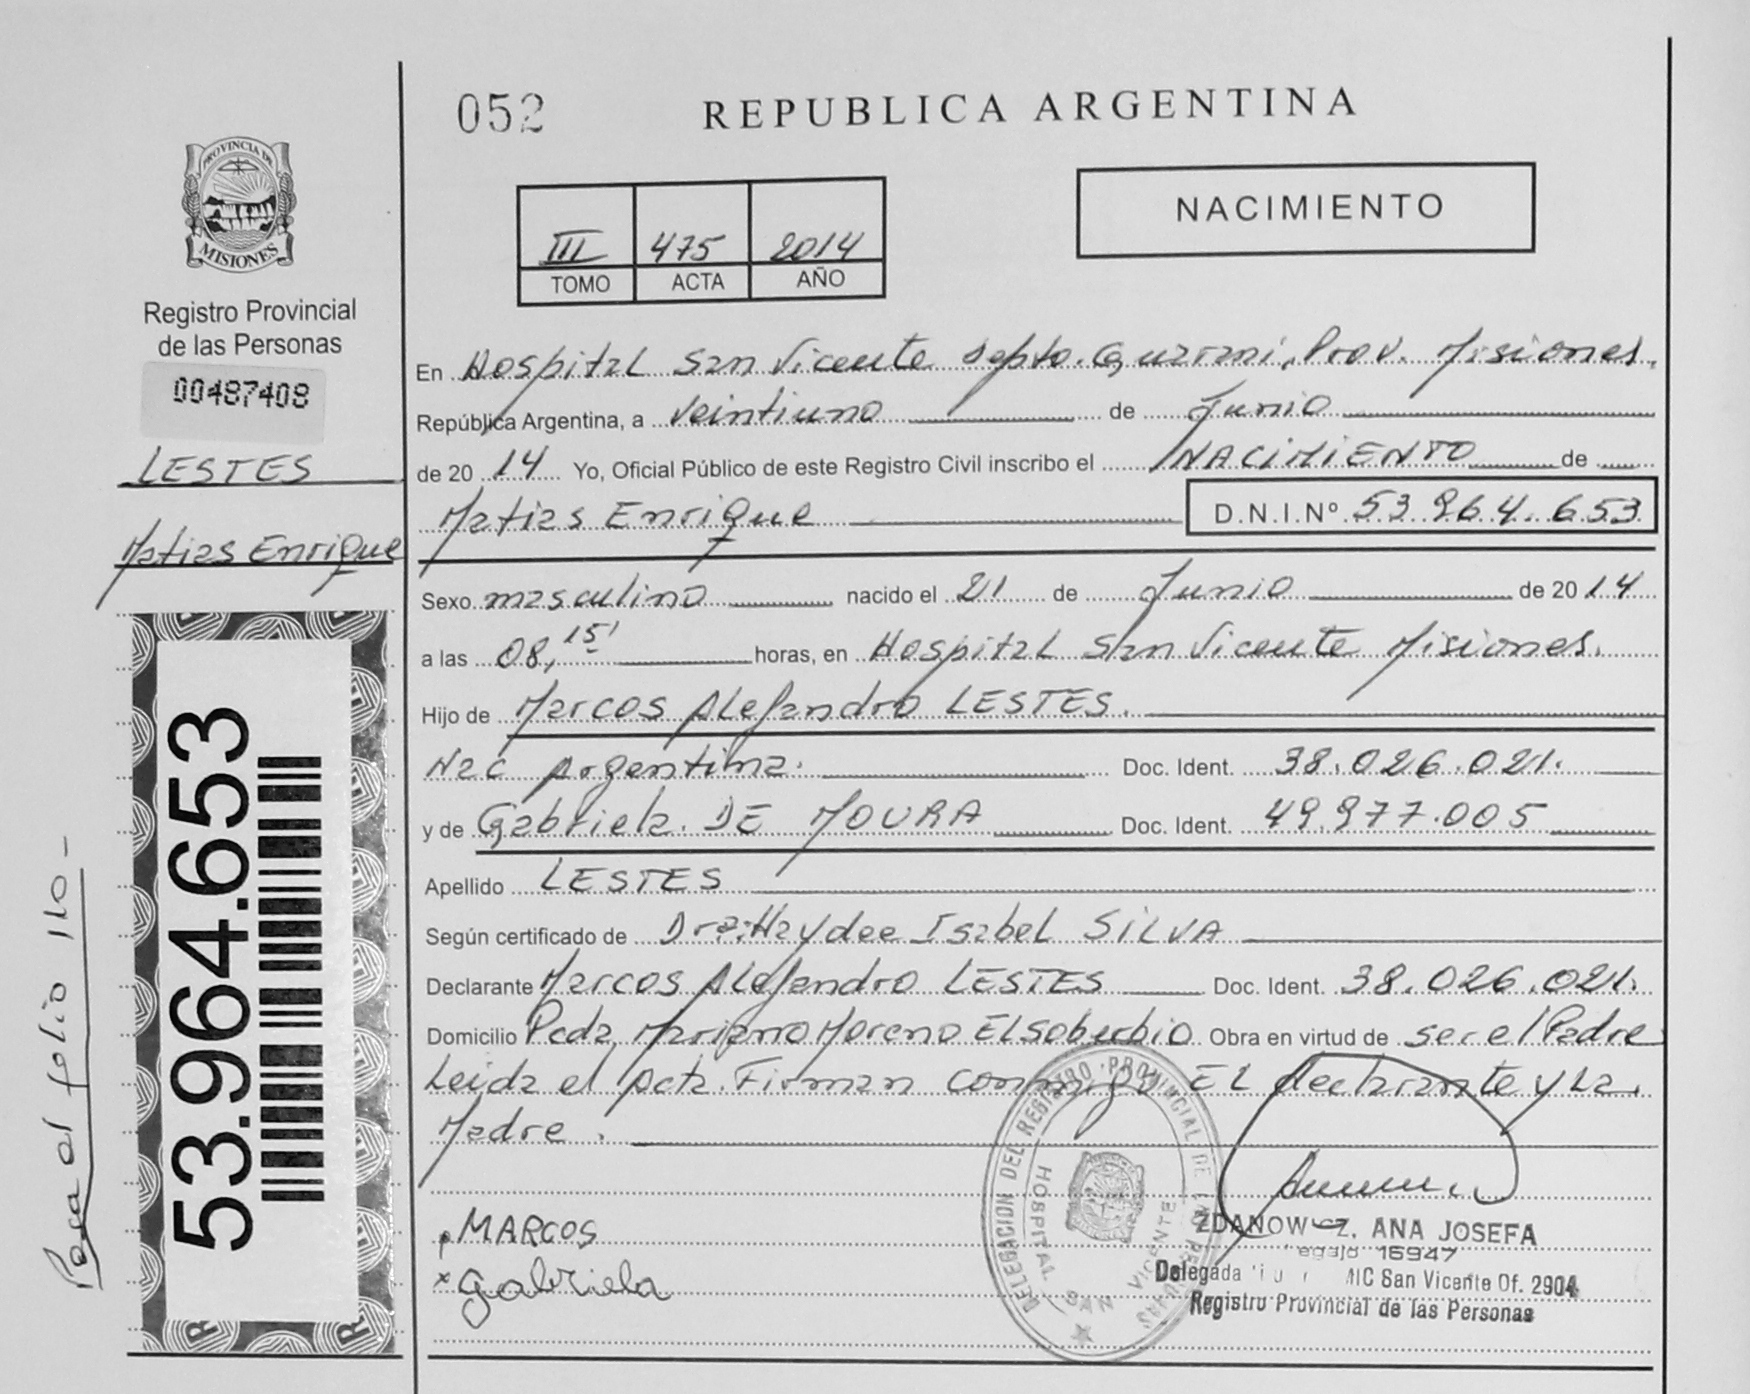 052
REPUBLICA ARGENTINA
NACIMIENTO
III 475 2014
TOMO ACTA AÑO
PROVINCIA DE
MISIONES
Registro Provincial
de las Personas
00487408
LESTES
Matias Enrique
53.964.653
Pasa al folio 110-
En Hospital San Vicente Depto. Guarani, Prov. Misiones.
República Argentina, a veintiuno de Junio
de 20 14 Yo, Oficial Público de este Registro Civil inscribo el NACIMIENTO de
Matias Enrique D.N.I.Nº 53.964.653
Sexo masculino nacido el 21 de Junio de 20 14
a las 08,15' horas, en Hospital San Vicente Misiones.
Hijo de Marcos Alejandro LESTES.
Nac Argentina. Doc. Ident. 38.026.021.
y de Gabriela. DE MOURA Doc. Ident. 49.977.005
Apellido LESTES
Según certificado de Dra: Haydee Isabel SILVA
Declarante Marcos Alejandro LESTES Doc. Ident. 38.026.021.
Domicilio Pcda Mariano Moreno El soberbio Obra en virtud de ser el Padre
Leida el Acta. Firman conmigo EL declarante y La
Madre.
MARCOS
x gabriela
DELEGACION DEL REGISTRO PROVINCIAL DE LAS PERSONAS
HOSPITAL SAN VICENTE
ANA JOSEFA
16947
Delegada San Vicente Of. 2904
Registro Provincial de las Personas